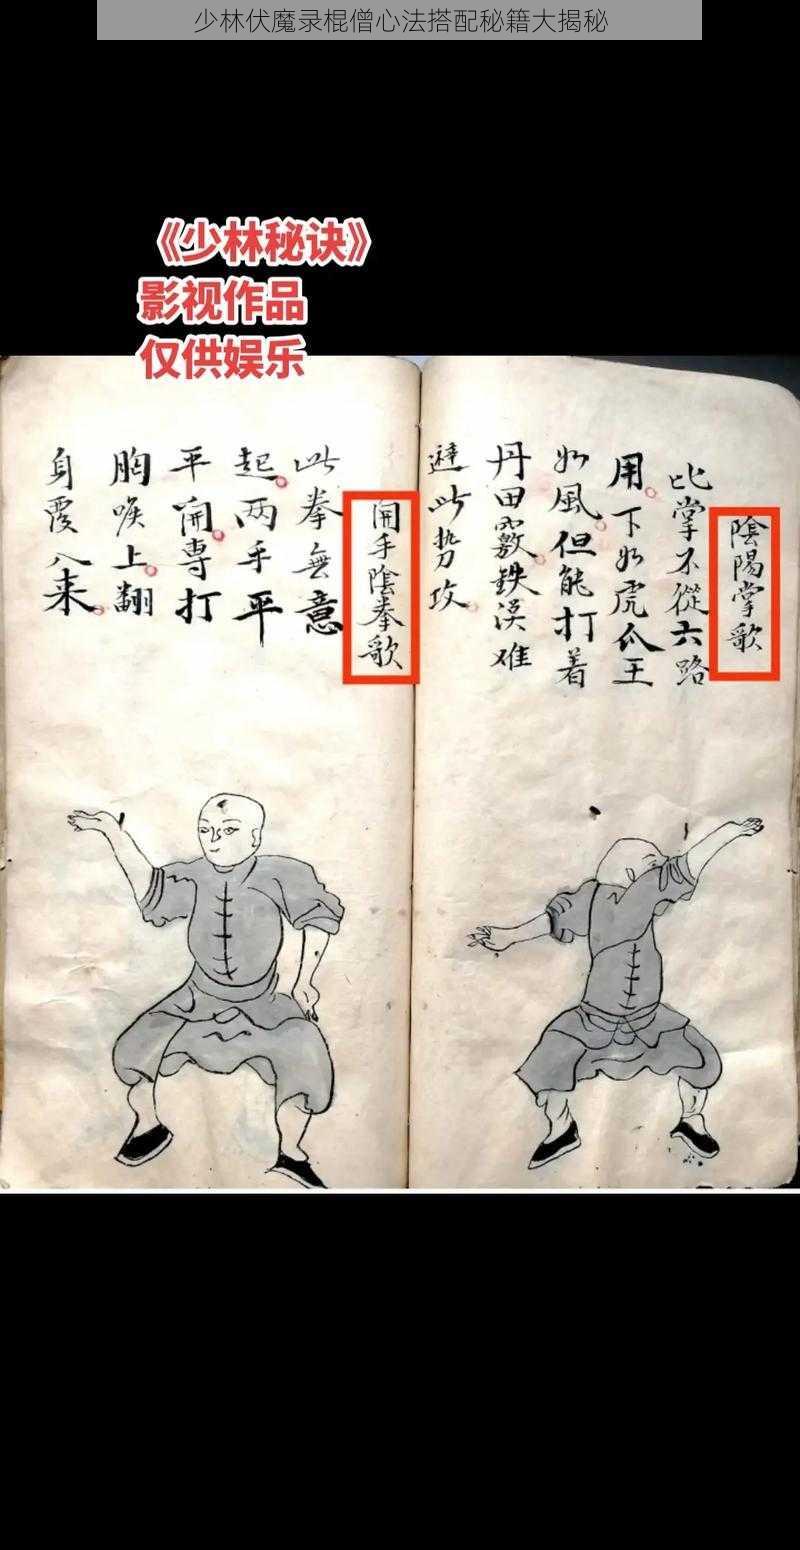 少林伏魔录棍僧心法搭配秘籍大揭秘
《少林秘诀》
影视作品
仅供娱乐
陰陽掌歌
此掌不從六路
用。下如虎爪王
如風。但能打着
丹田竅。鉄漢难
避此势攻。
開手陰拳歌
此拳無意
起。两手平
平開。專打
胸喉上。翻
身覆八来。